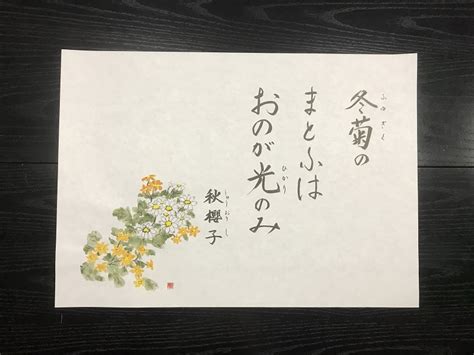 ふゆぎく
冬菊の
まとふは
ひかり
おのが光のみ
しゅうおうし
秋櫻子